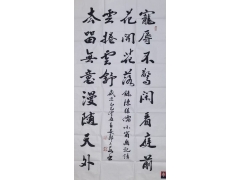 寵辱不驚閑看庭前
花開花落
去留無意漫随天外
雲捲雲舒